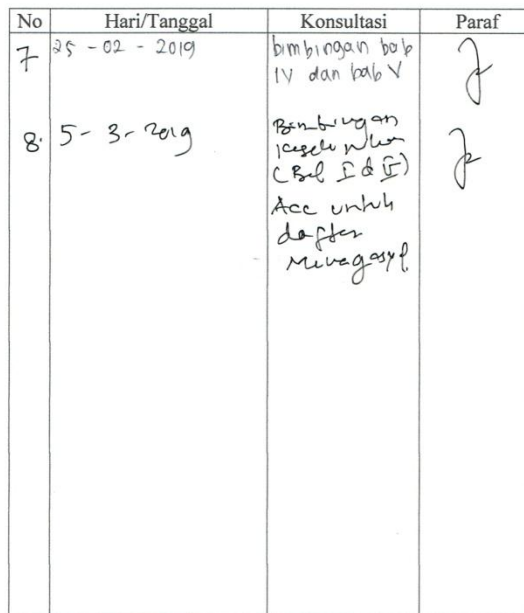 No Hari/Tanggal Konsultasi Paraf
7 25 - 02 - 2019 bimbingan bab
IV dan bab V
8. 5 - 3 - 2019 Bimbingan
keseluruhan
(Bab I d V)
Acc untuk
daftar
Munaqasyah